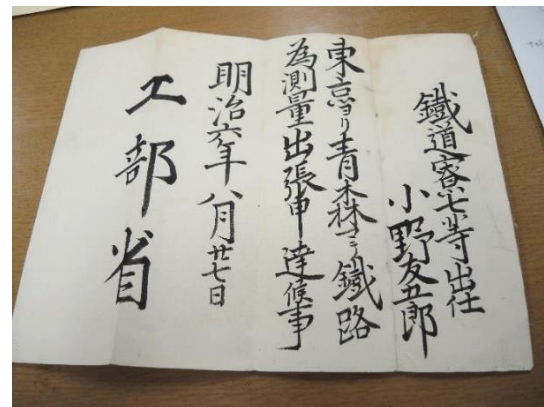 鐵道寮七等出仕
小野友五郎
東京ヨリ青森マテ鐵路
為測量出張申達候事
明治六年八月廿七日
工部省